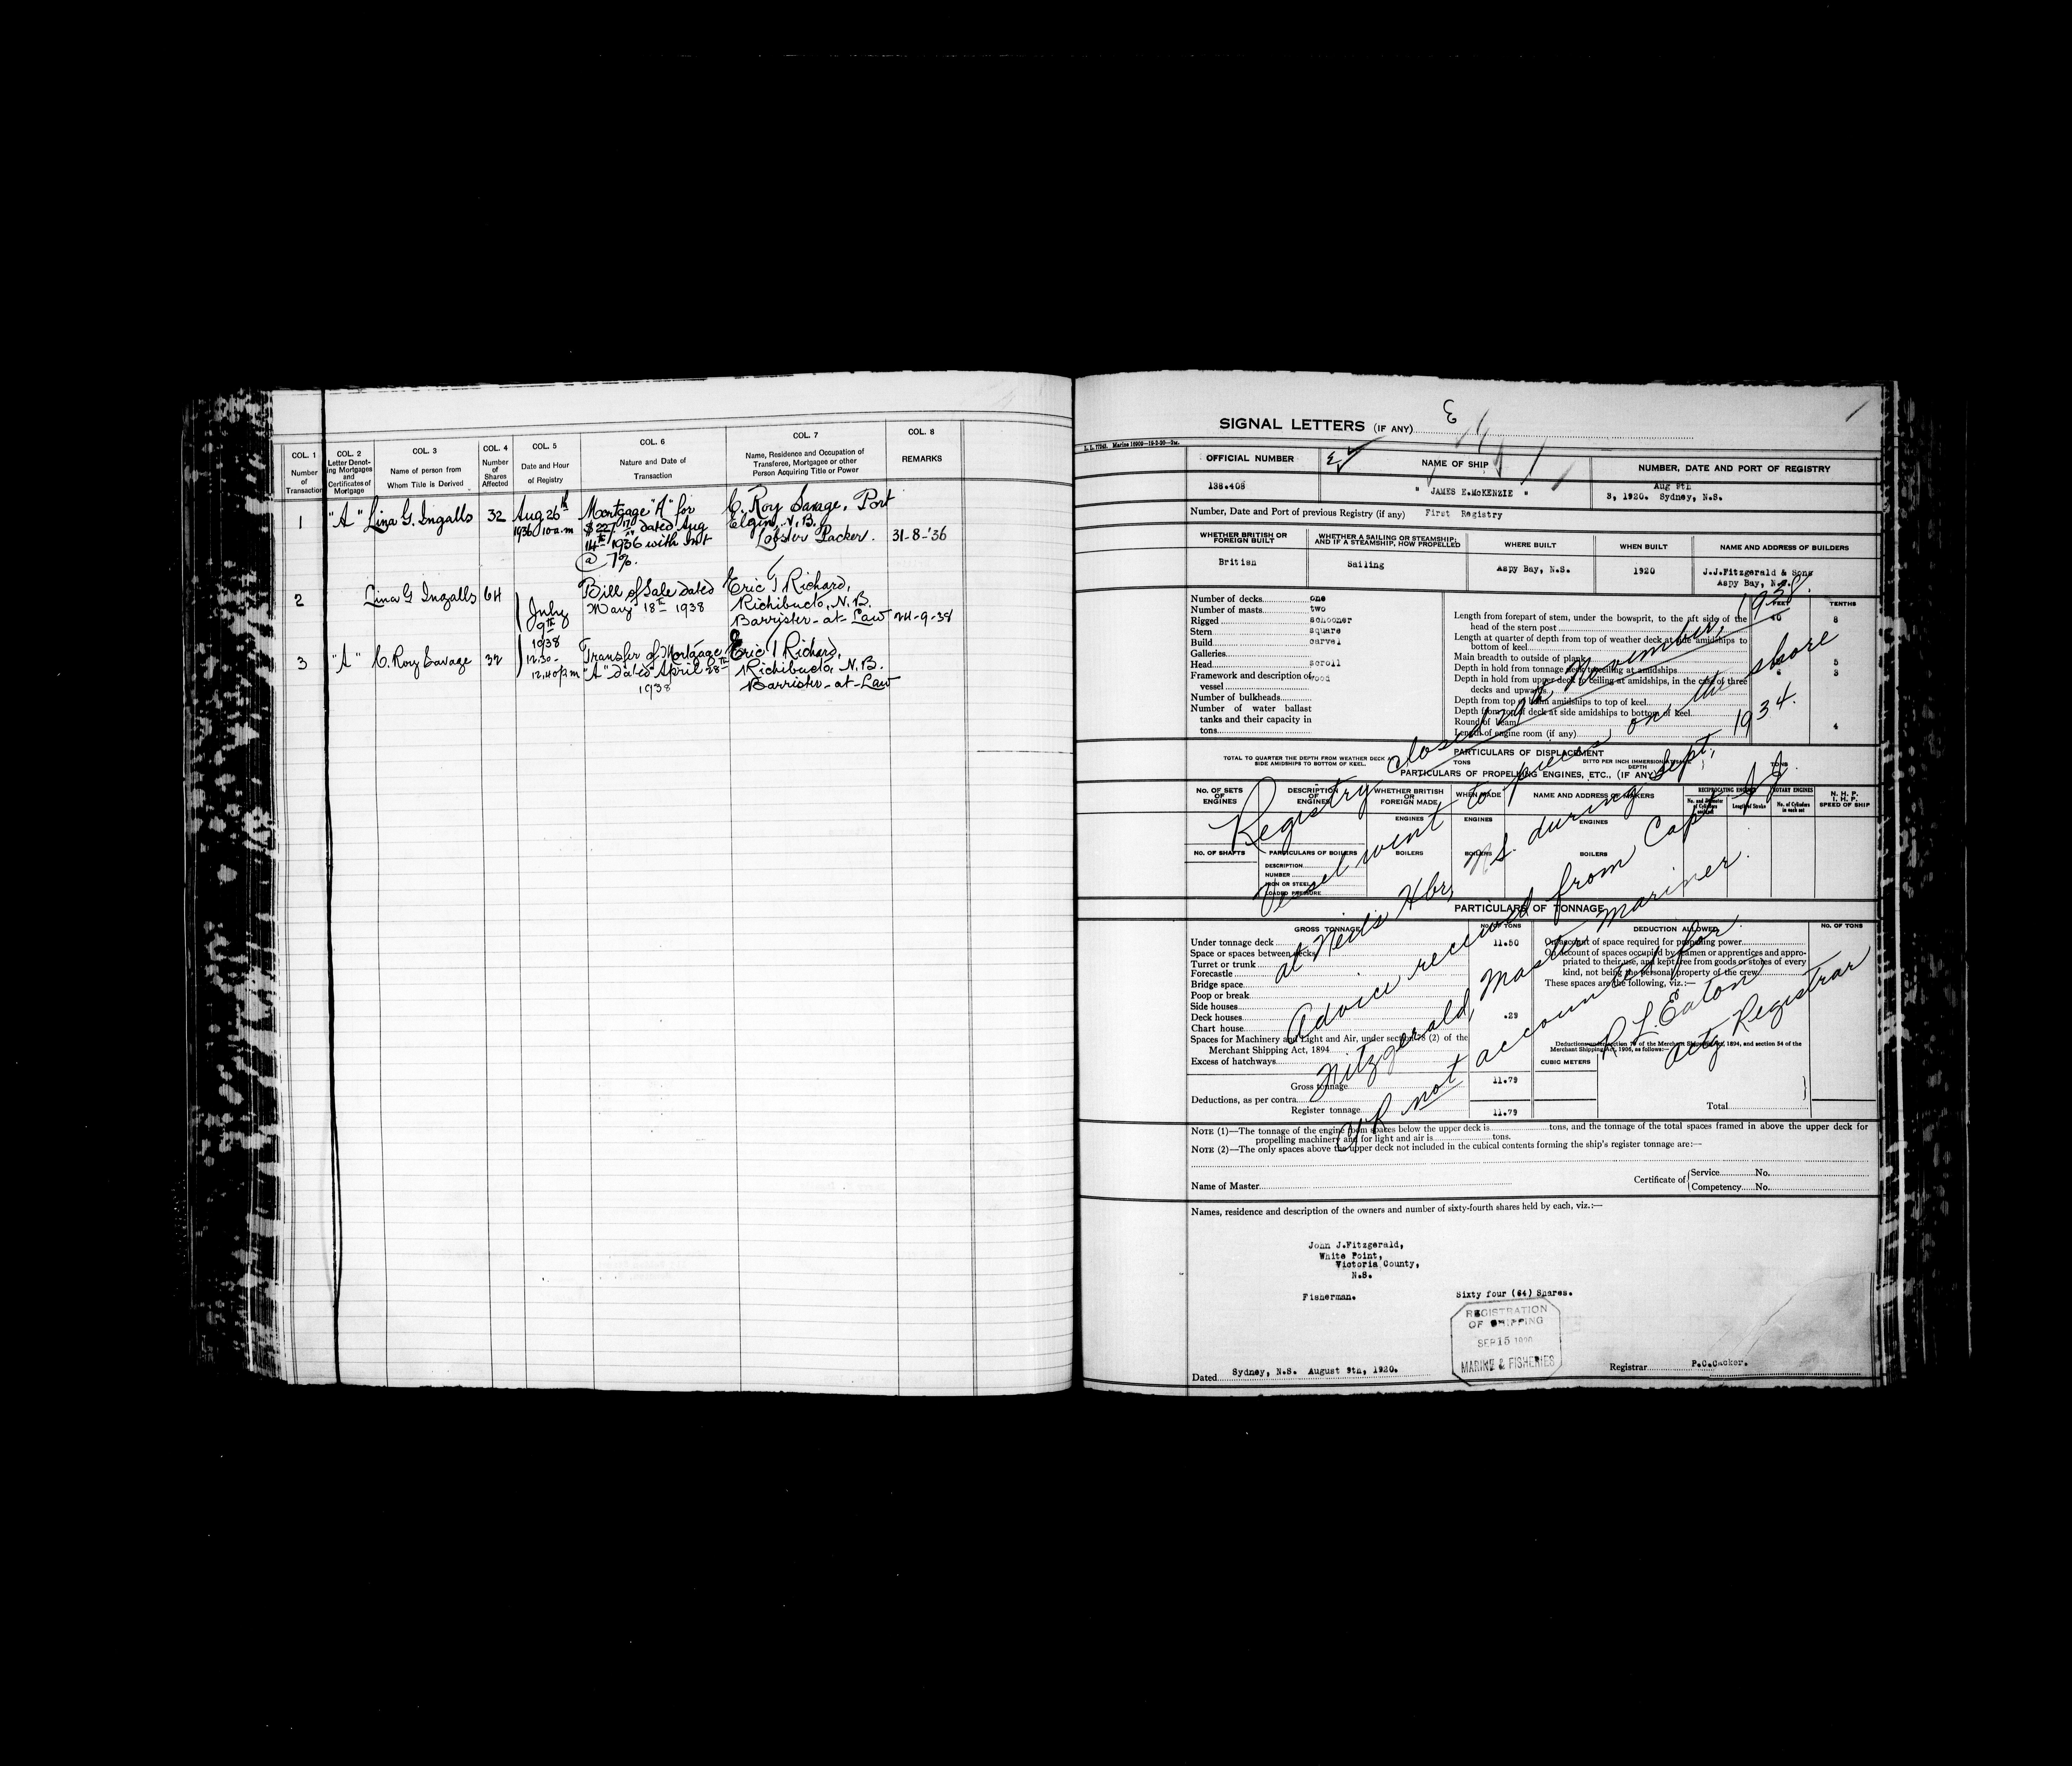 COL. 1
Number
of
Transaction
COL. 2
Letter Denot-
ing Mortgages
and
Certificates of
Mortgage
COL. 3
Name of person from
Whom Title is Derived
COL. 4
Number
of
Shares
Affected
COL. 5
Date and Hour
of Registry
COL. 6
Nature and Date of
Transaction
COL. 7
Name, Residence and Occupation of
Transferee, Mortgagee or other
Person Acquiring Title or Power
COL. 8
REMARKS
1 "A" Lina G. Ingalls 32 Aug 26th
1936 10 a.m
Mortgage "A" for
$227 17 dated Aug
14th 1936 with Int
@ 7%.
C. Roy Savage, Port
Elgin, N.B.
Lobster Packer. 31-8-'36
2 Lina G Ingalls 64
July
9th
1938
12.30 -
12.40 p.m
Bill of Sale dated
May 18th 1938
Eric T Richard,
Richibucto, N.B.
Barrister-at-Law 24-9-38
3 "A" C. Roy Savage 32
Transfer of Mortgage
"A" dated April 28th
1938
Eric T Richard,
Richibucto, N.B.
Barrister-at-Law
SIGNAL LETTERS (IF ANY)
L. L. 77242. Marine 10909—19-2-20—2M.
OFFICIAL NUMBER
NAME OF SHIP
NUMBER, DATE AND PORT OF REGISTRY
138.408
" JAMES E.McKENZIE "
Aug 9th
3, 1920. Sydney, N.S.
Number, Date and Port of previous Registry (if any) First Registry
WHETHER BRITISH OR
FOREIGN BUILT
WHETHER A SAILING OR STEAMSHIP;
AND IF A STEAMSHIP, HOW PROPELLED
WHERE BUILT
WHEN BUILT
NAME AND ADDRESS OF BUILDERS
British
Sailing
Aspy Bay, N.S.
1920
J.J.Fitzgerald & Sons
Aspy Bay, N.S.
Number of decks one
Number of masts two
Rigged schooner
Stern square
Build carvel
Galleries
Head scroll
Framework and description of wood
vessel
Number of bulkheads
Number of water ballast
tanks and their capacity in
tons
FEET TENTHS
Length from forepart of stem, under the bowsprit, to the aft side of the
head of the stern post 40 8
Length at quarter of depth from top of weather deck at side amidships to
bottom of keel
Main breadth to outside of plank 5
Depth in hold from tonnage deck to ceiling at amidships 3
Depth in hold from upper deck to ceiling at amidships, in the case of three
decks and upwards
Depth from top of beam amidships to top of keel
Depth from top of deck at side amidships to bottom of keel
Round of beam 4
Length of engine room (if any)
PARTICULARS OF DISPLACEMENT
TOTAL TO QUARTER THE DEPTH FROM WEATHER DECK AT
SIDE AMIDSHIPS TO BOTTOM OF KEEL.
TONS
DITTO PER INCH IMMERSION AT SAME
DEPTH
TONS
PARTICULARS OF PROPELLING ENGINES, ETC., (IF ANY)
NO. OF SETS
OF
ENGINES
DESCRIPTION
OF
ENGINES
WHETHER BRITISH
OR
FOREIGN MADE
WHEN MADE
NAME AND ADDRESS OF MAKERS
RECIPROCATING ENGINES
No. and Diameter
of Cylinders
Length of Stroke
ROTARY ENGINES
No. of Cylinders
in each set
N. H. P.
I. H. P.
SPEED OF SHIP
ENGINES
ENGINES
ENGINES
NO. OF SHAFTS
PARTICULARS OF BOILERS
BOILERS
BOILERS
BOILERS
DESCRIPTION
NUMBER
IRON OR STEEL
LOADED PRESSURE
PARTICULARS OF TONNAGE
GROSS TONNAGE
NO. OF TONS
Under tonnage deck 11.50
Space or spaces between decks
Turret or trunk
Forecastle
Bridge space
Poop or break
Side houses
Deck houses .29
Chart house
Spaces for Machinery and Light and Air, under section 78 (2) of the
Merchant Shipping Act, 1894
Excess of hatchways
Gross tonnage 11.79
Deductions, as per contra
Register tonnage 11.79
DEDUCTION ALLOWED
NO. OF TONS
On account of space required for propelling power
On account of spaces occupied by seamen or apprentices and appro-
priated to their use, and kept free from goods or stores of every
kind, not being the personal property of the crew
These spaces are the following, viz.:—
Deductions under section 79 of the Merchant Shipping Act, 1894, and section 54 of the
Merchant Shipping Act, 1906, as follows:—
CUBIC METERS
Total
Registry closed November, 1938.
Vessel went to pieces on the shore
at Neils Hbr, N.S. during Sept, 1934.
Advice received from Capt
Fitzgerald, Master Mariner.
C of R not accounted for
R L. Eaton
Actg Registrar
NOTE (1)—The tonnage of the engine room spaces below the upper deck is tons, and the tonnage of the total spaces framed in above the upper deck for
propelling machinery and for light and air is tons.
NOTE (2)—The only spaces above the upper deck not included in the cubical contents forming the ship's register tonnage are:—
Name of Master
Certificate of
Service No.
Competency No.
Names, residence and description of the owners and number of sixty-fourth shares held by each, viz.:—
John J.Fitzgerald,
White Point,
Victoria County,
N.S.
Fisherman. Sixty four (64) Shares.
REGISTRATION
OF SHIPPING
SEP 15 1920
MARINE & FISHERIES
Dated Sydney, N.S. August 9th, 1920.
Registrar P.C.Cacker.